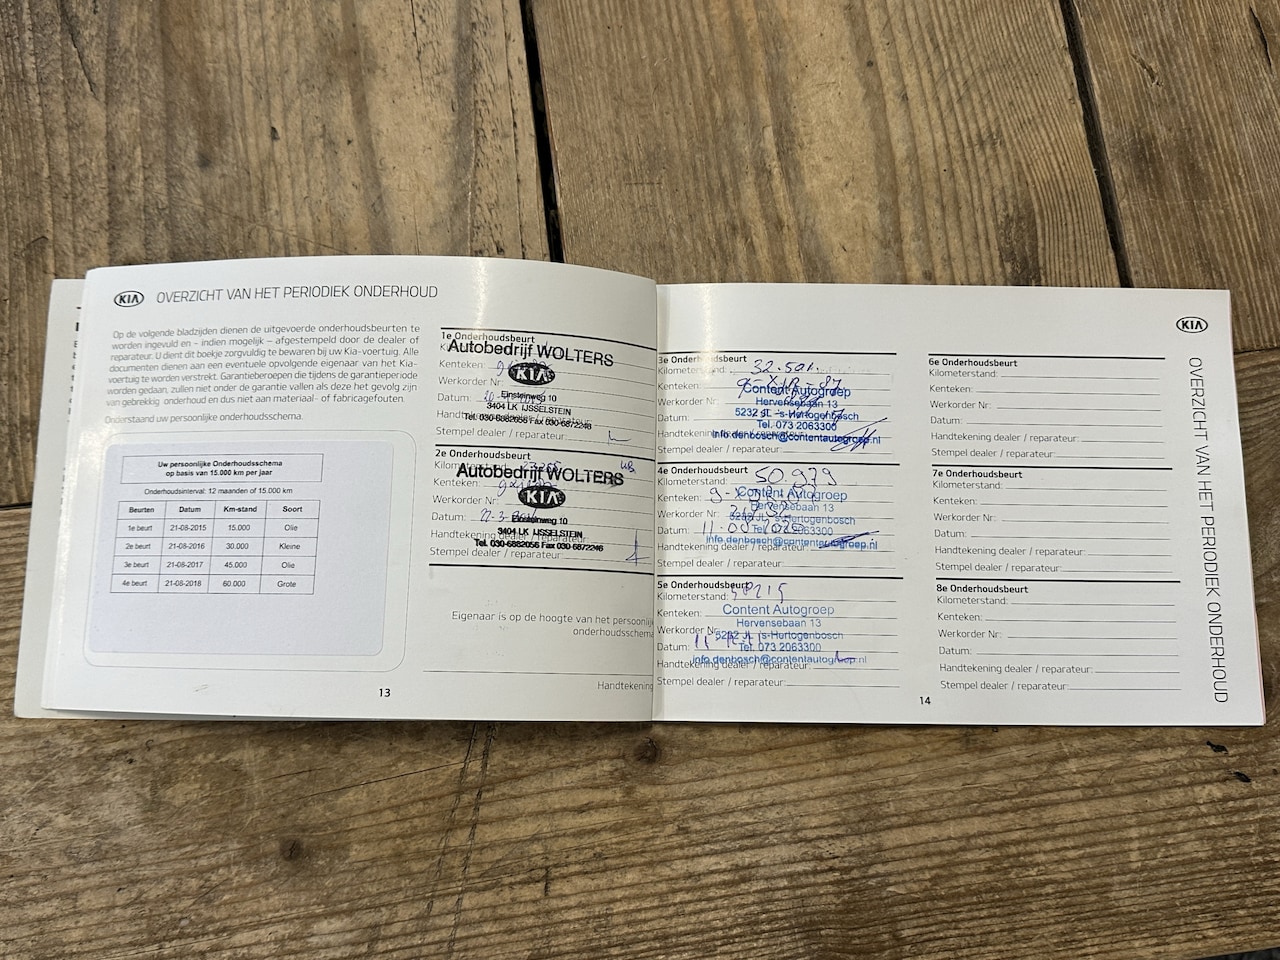 KIA OVERZICHT VAN HET PERIODIEK ONDERHOUD
Op de volgende bladzijden dienen de uitgevoerde onderhoudsbeurten te
worden ingevuld en – indien mogelijk – afgestempeld door de dealer of
reparateur. U dient dit boekje zorgvuldig te bewaren bij uw Kia-voertuig. Alle
documenten dienen aan een eventuele opvolgende eigenaar van het Kia-
voertuig te worden verstrekt. Garantieberoepen die tijdens de garantieperiode
worden gedaan, zullen niet onder de garantie vallen als deze het gevolg zijn
van gebrekkig onderhoud en dus niet aan materiaal- of fabricagefouten.
Onderstaand uw persoonlijke onderhoudsschema.
Uw persoonlijke Onderhoudsschema
op basis van 15.000 km per jaar
Onderhoudsinterval: 12 maanden of 15.000 km
Beurten Datum Km-stand Soort
1e beurt 21-08-2015 15.000 Olie
2e beurt 21-08-2016 30.000 Kleine
3e beurt 21-08-2017 45.000 Olie
4e beurt 21-08-2018 60.000 Grote
13
1e Onderhoudsbeurt
Autobedrijf WOLTERS
Kenteken:
KIA
Werkorder Nr:
Datum:
Einsteinweg 10
3404 LK IJSSELSTEIN
Tel. 030-6882056 Fax 030-6872246
Stempel dealer / reparateur:
2e Onderhoudsbeurt
Autobedrijf WOLTERS
Kenteken:
KIA
Werkorder Nr:
Datum: 22-3-
Einsteinweg 10
3404 LK IJSSELSTEIN
Handtekening dealer / reparateur:
Tel. 030-6882056 Fax 030-6872246
Stempel dealer / reparateur:
Eigenaar is op de hoogte van het
onderhoudsschema
Handtekening
3e Onderhoudsbeurt
Kilometerstand: 32.501
Kenteken:
Content Autogroep
Werkorder Nr:
Hervensebaan 13
5232 JL -'s-Hertogenbosch
Datum:
Tel. 073 2063300
Handtekening dealer / reparateur:
info.denbosch@contentautogroep.nl
Stempel dealer / reparateur:
4e Onderhoudsbeurt
Kilometerstand: 50.979
Kenteken:
Content Autogroep
Hervensebaan 13
Werkorder Nr:
5232 JL 's-Hertogenbosch
Datum:
Tel. 073 2063300
info.denbosch@contentautogroep.nl
Handtekening dealer / reparateur:
Stempel dealer / reparateur:
5e Onderhoudsbeurt
Kilometerstand:
Content Autogroep
Kenteken:
Hervensebaan 13
Werkorder Nr:
5232 JL 's-Hertogenbosch
Datum:
Tel. 073 2063300
info.denbosch@contentautogroep.nl
Handtekening dealer / reparateur:
Stempel dealer / reparateur:
14
6e Onderhoudsbeurt
Kilometerstand:
Kenteken:
Werkorder Nr:
Datum:
Handtekening dealer / reparateur:
Stempel dealer / reparateur:
7e Onderhoudsbeurt
Kilometerstand:
Kenteken:
Werkorder Nr:
Datum:
Handtekening dealer / reparateur:
Stempel dealer / reparateur:
8e Onderhoudsbeurt
Kilometerstand:
Kenteken:
Werkorder Nr:
Datum:
Handtekening dealer / reparateur:
Stempel dealer / reparateur:
KIA
OVERZICHT VAN HET PERIODIEK ONDERHOUD